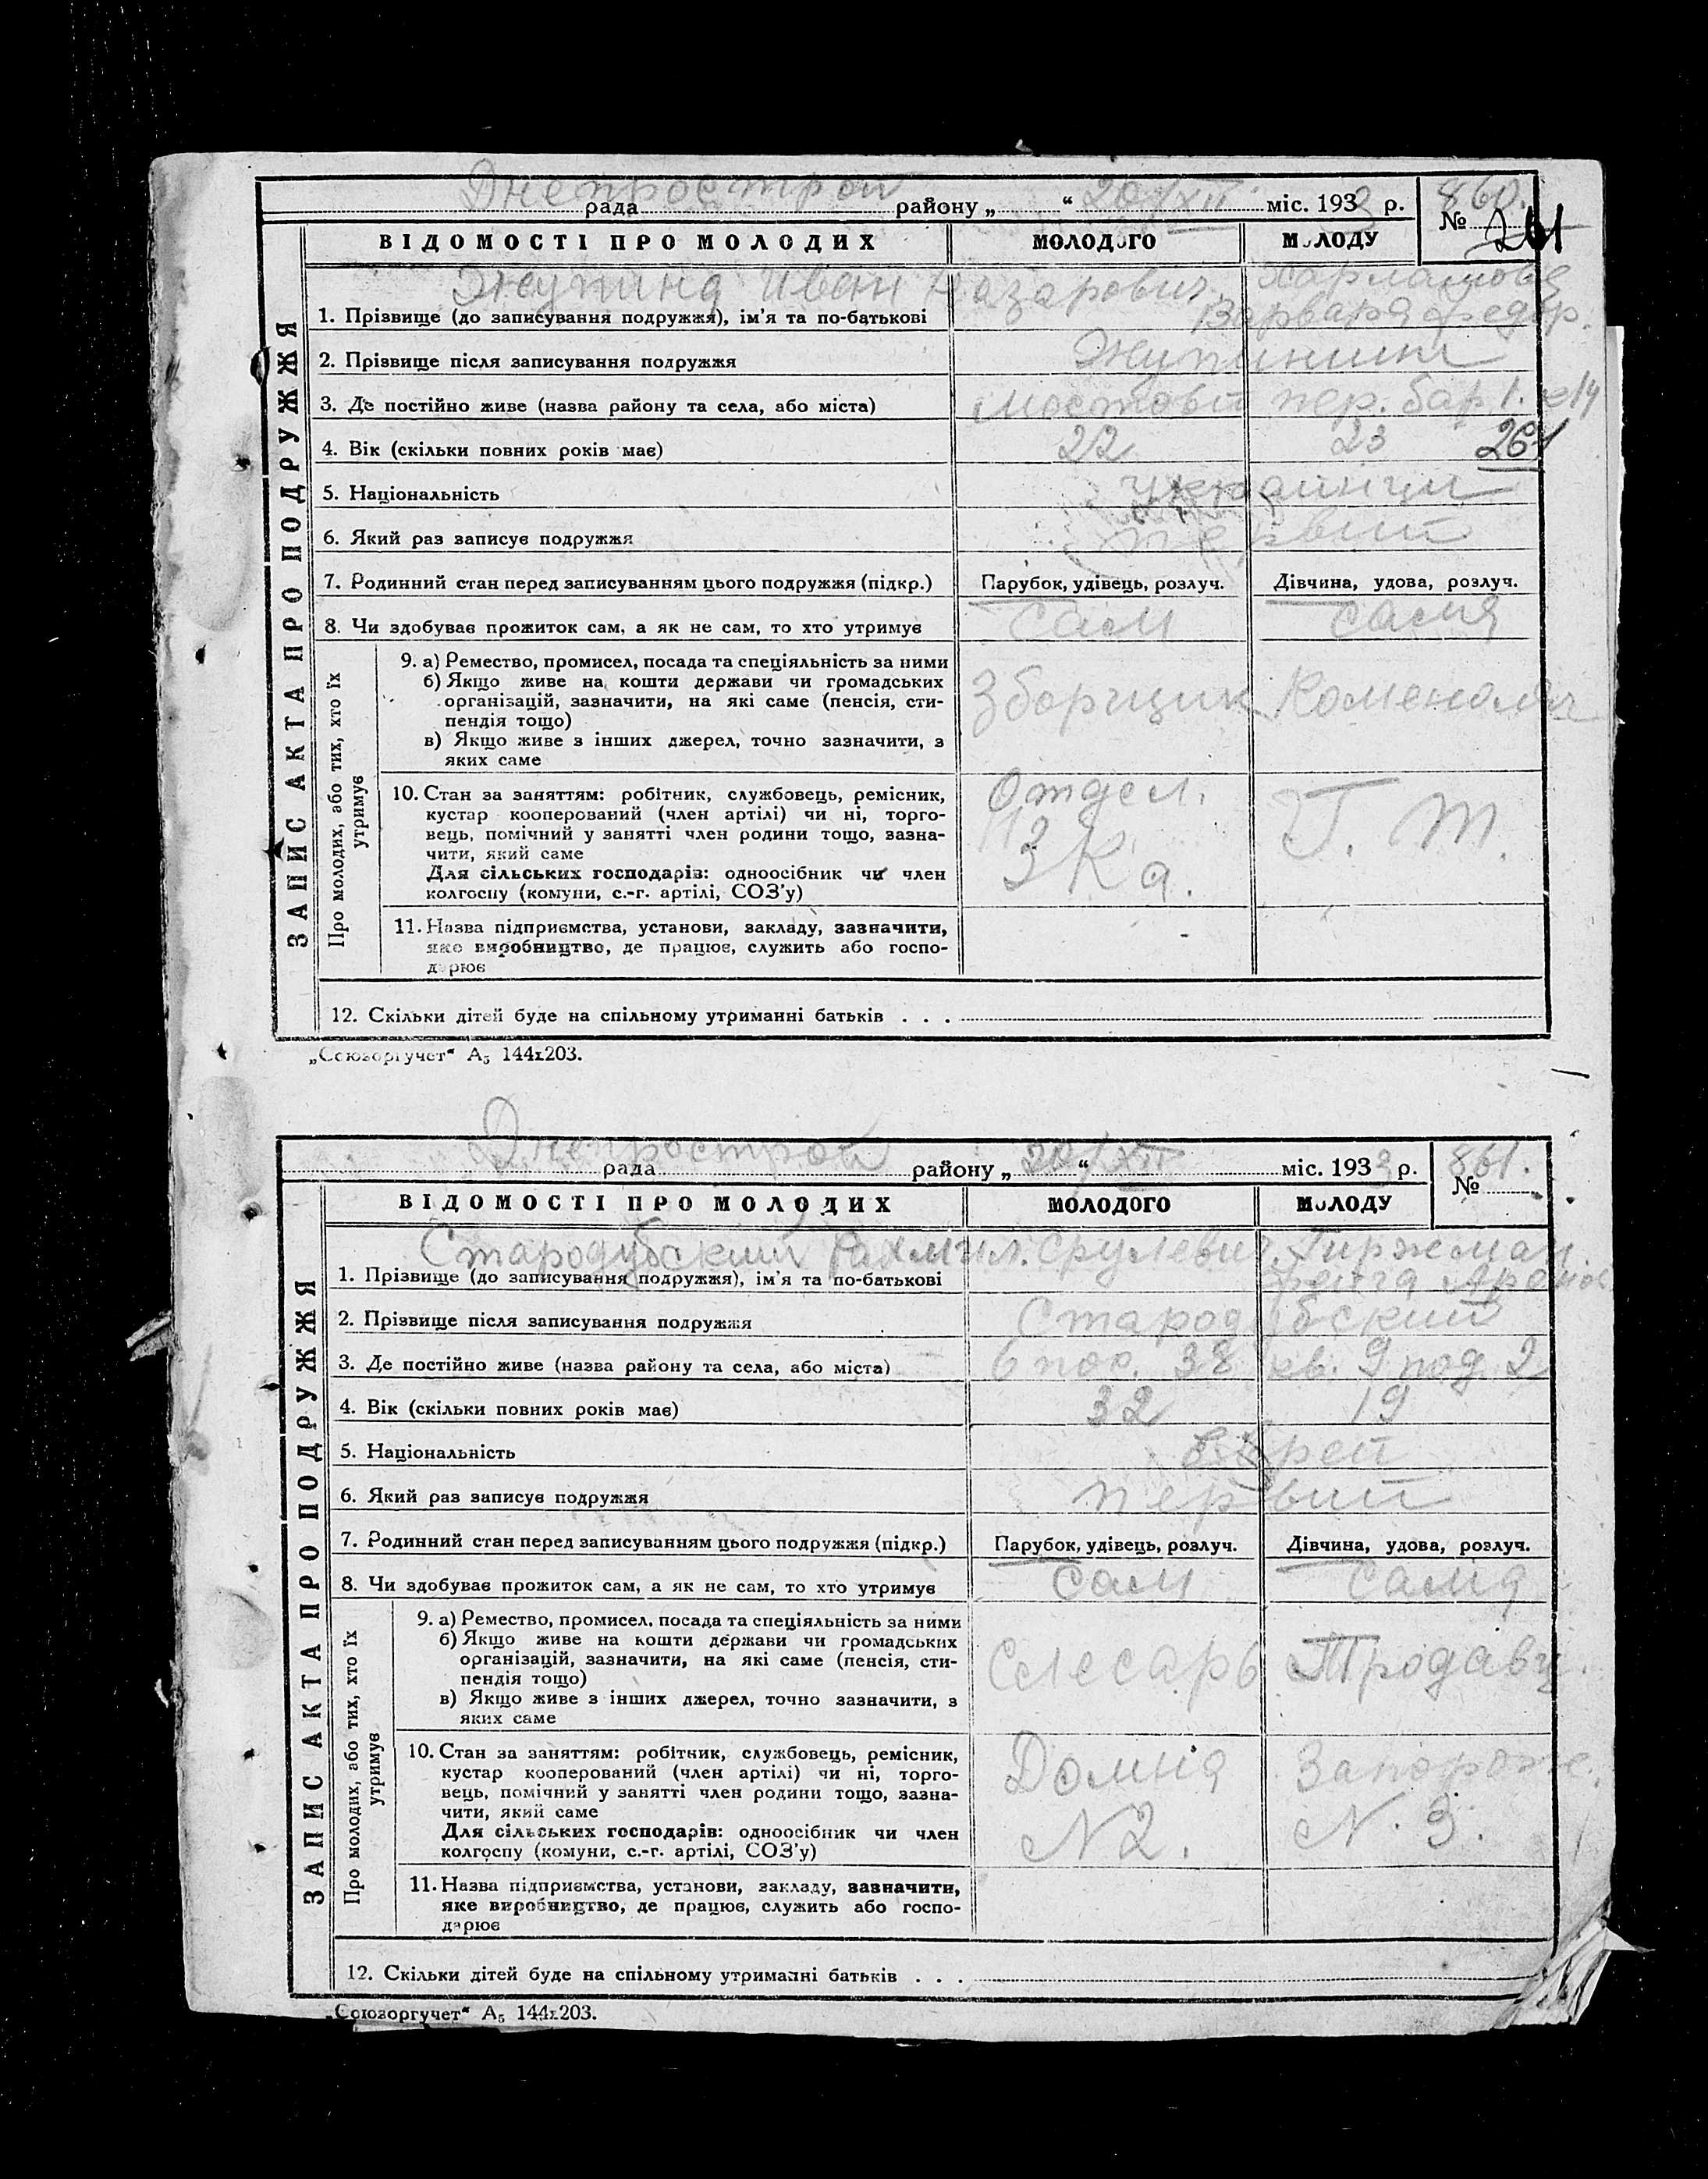 Днепрострой 860.
рада района „ “ 20/XII міс. 1933 р. № 261
ВІДОМОСТІ ПРО МОЛОДИХ МОЛОДОГО МОЛОДУ
ЗАПИС АКТА ПРО ПОДРУЖЖЯ
Жупина Иван Назарович.
1. Прізвище (до записування подружжя), ім'я та по-батькові Варвара Федор.
2. Прізвище після записування подружжя
3. Де постійно живе (назва району та села, або міста) пер. бар 1.
4. Вік (скільки повних років має) 22 23 261
5. Національність украинци
6. Який раз записує подружжя первий
7. Родинний стан перед записуванням цього подружжя (підкр.) Парубок, удівець, розлуч. Дівчина, удова, розлуч.
8. Чи здобуває прожиток сам, а як не сам, то хто утримує сам сама
Про молодих, або тих, хто їх утримує
9. а) Ремество, промисел, посада та спеціяльність за ними
б) Якщо живе на кошти держави чи громадських
організацій, зазначити, на які саме (пенсія, сти-
пендія тощо)
в) Якщо живе з інших джерел, точно зазначити, з
яких саме
Зборщик
10. Стан за заняттям: робітник, службовець, ремісник,
кустар кооперований (член артілі) чи ні, торго-
вець, помічний у занятті член родини тощо, зазна-
чити, який саме
Для сільських господарів: одноосібник чи член
колгоспу (комуни, с.-г. артілі, СОЗ'у)
Отдел.
11. Назва підприємства, установи, закладу, зазначити,
яке виробництво, де працює, служить або госпо-
дарює
12. Скільки дітей буде на спільному утриманні батьків . . .
„Союзоргучет“ А₅ 144х203.
Днепрострой 861.
рада району „ 20/XII “ міс. 1933 р. №
ВІДОМОСТІ ПРО МОЛОДИХ МОЛОДОГО МОЛОДУ
ЗАПИС АКТА ПРО ПОДРУЖЖЯ
Стародубский Рахмил. Срулевич. Гиржман
1. Прізвище (до записування подружжя), ім'я та по-батькові
2. Прізвище після записування подружжя Стародубский
3. Де постійно живе (назва району та села, або міста) 6 пос. 38 кв. 9 под 2
4. Вік (скільки повних років має) 32 19
5. Національність Еврей
6. Який раз записує подружжя первий
7. Родинний стан перед записуванням цього подружжя (підкр.) Парубок, удівець, розлуч. Дівчина, удова, розлуч.
8. Чи здобуває прожиток сам, а як не сам, то хто утримує сам сама
Про молодих, або тих, хто їх утримує
9. а) Ремество, промисел, посада та спеціяльність за ними
б) Якщо живе на кошти держави чи громадських
організацій, зазначити, на які саме (пенсія, сти-
пендія тощо)
в) Якщо живе з інших джерел, точно зазначити, з
яких саме
Слесарь Продавц.
10. Стан за заняттям: робітник, службовець, ремісник,
кустар кооперований (член артілі) чи ні, торго-
вець, помічний у занятті член родини тощо, зазна-
чити, який саме
Для сільських господарів: одноосібник чи член
колгоспу (комуни, с.-г. артілі, СОЗ'у)
Домна Запорож.
N 2. N. 3.
11. Назва підприємства, установи, закладу, зазначити,
яке виробництво, де працює, служить або госпо-
дарює
12. Скільки дітей буде на спільному утриманні батьків . . .
„Союзоргучет“ А₅ 144х203.